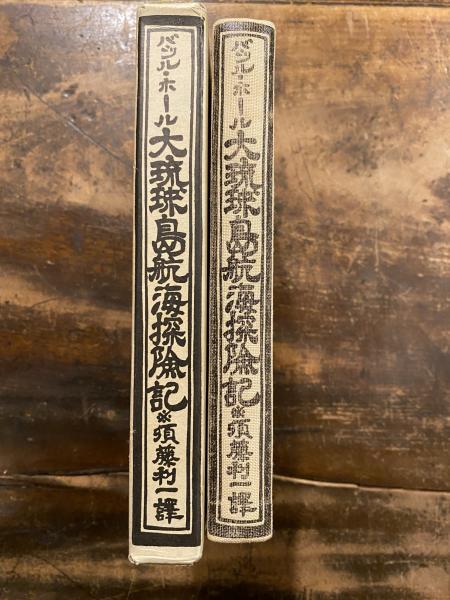 バジル・ホール大琉球島航海探險記※須藤利一譯
バジル・ホール大琉球島航海探險記※須藤利一譯